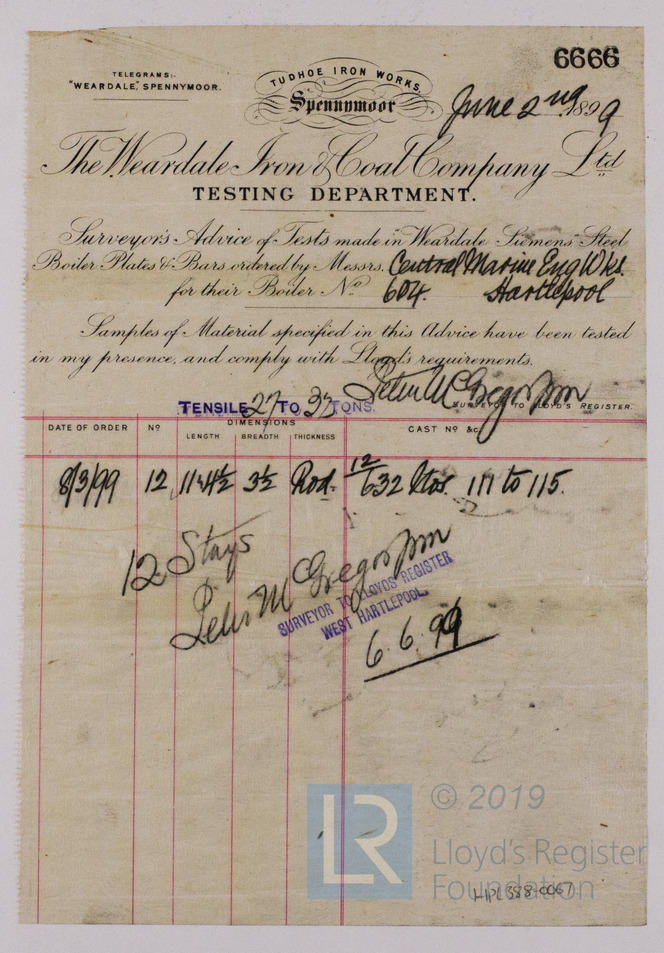 6666
TELEGRAMS:-
"WEARDALE," SPENNYMOOR.
TUDHOE IRON WORKS,
Spennymoor
June 2nd 1899
The Weardale Iron & Coal Company Ltd
TESTING DEPARTMENT.
Surveyor's Advice of Tests made in Weardale Siemens Steel
Boiler Plates & Bars ordered by Messrs. Central Marine Eng Wks.
for their Boiler No. 604. Hartlepool
Samples of Material specified in this Advice have been tested
in my presence, and comply with Lloyd's requirements.
Peter McGregor
SURVEYOR TO LLOYD'S REGISTER.
TENSILE 27 TO 32 TONS.
DATE OF ORDER No DIMENSIONS CAST No &c
LENGTH BREADTH THICKNESS
8/3/99 12 11'4½ 3½ Rod. 12/632 111 to 115.
12 Stays
Peter McGregor
SURVEYOR TO LLOYDS REGISTER
WEST HARTLEPOOL.
6.6.99
LR
© 2019
Lloyd's Register
Foundation
HPL388-0067